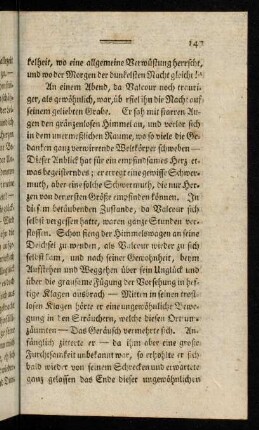 147
kelheit, wo eine allgemeine Verwüstung herrscht,
und wo der Morgen der dunkelsten Nacht gleicht!“
An einem Abend, da Valcour noch trauri-
ger, als gewöhnlich, war, überfiel ihn die Nacht auf
seinem geliebten Grabe. Er sah mit starren Au-
gen den gränzenlosen Himmel an, und verlor sich
in dem unermeßlichen Raume, wo so viele die Ge-
danken ganz verwirrende Weltkörper schweben —
Dieser Anblick hat für ein empfindsames Herz et-
was begeisterndes; er erregt eine gewisse Schwer-
muth, aber eine solche Schwermuth, die nur Her-
zen von der ersten Größe empfinden können. In
diesem betäubenden Zustande, da Valcour sich
selbst vergessen hatte, waren ganze Stunden ver-
flossen. Schon fieng der Himmelswagen an seine
Deichsel zu wenden, als Valcour wieder zu sich
selbst kam, und nach seiner Gewohnheit, beym
Aufstehen und Weggehen über sein Unglück und
über die grausame Fügung der Vorsehung in hef-
tige Klagen ausbrach — Mitten in seinen trost-
losen Klagen hörte er eine ungewöhnliche Bewe-
gung in den Sträuchern, welche diesen Ort um-
zäumten — Das Geräusch vermehrte sich. An-
fänglich zitterte er — da ihm aber eine große
Furchtsamkeit unbekannt war, so erholte er sich
bald wieder von seinem Schrecken und erwartete
ganz gelassen das Ende dieser ungewöhnlichen